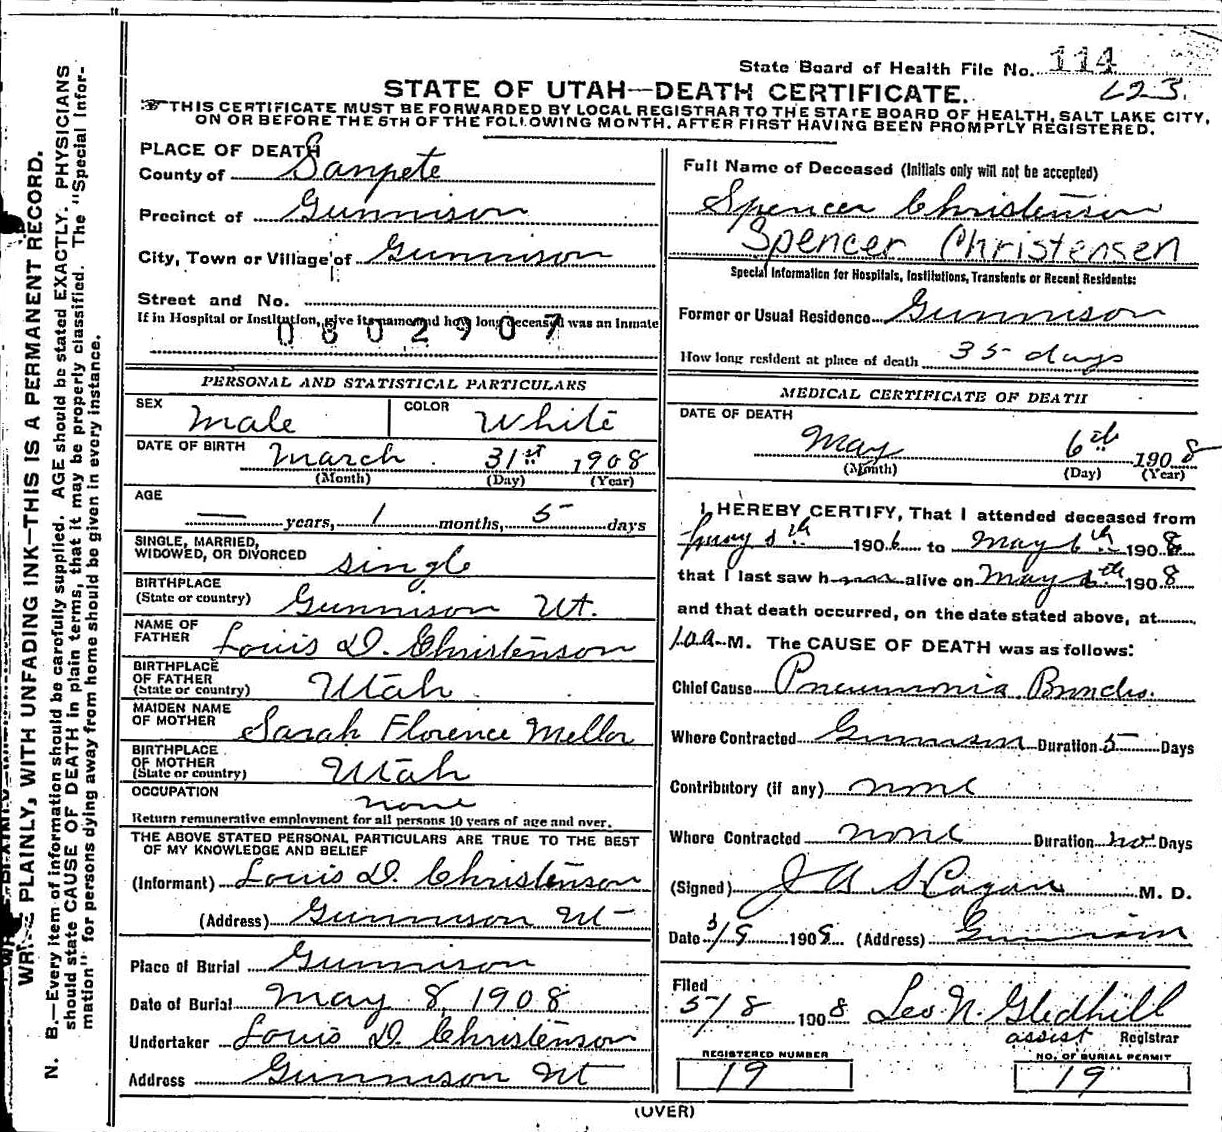 State Board of Health File No. 114
STATE OF UTAH—DEATH CERTIFICATE.
THIS CERTIFICATE MUST BE FORWARDED BY LOCAL REGISTRAR TO THE STATE BOARD OF HEALTH, SALT LAKE CITY,
ON OR BEFORE THE 5TH OF THE FOLLOWING MONTH, AFTER FIRST HAVING BEEN PROMPTLY REGISTERED.
WRITE PLAINLY, WITH UNFADING INK—THIS IS A PERMANENT RECORD.
N. B.—Every item of information should be carefully supplied. AGE should be stated EXACTLY. PHYSICIANS
should state CAUSE OF DEATH in plain terms, that it may be properly classified. The "Special Infor-
mation" for persons dying away from home should be given in every instance.
PLACE OF DEATH
County of Sanpete
Precinct of Gunnison
City, Town or Village of Gunnison
Street and No.
If in Hospital or Institution, give its name and how long deceased was an inmate
0602907
PERSONAL AND STATISTICAL PARTICULARS
SEX Male COLOR White
DATE OF BIRTH March 31st 1908
(Month) (Day) (Year)
AGE
— years, 1 months, 5 days
SINGLE, MARRIED,
WIDOWED, OR DIVORCED single
BIRTHPLACE
(State or country) Gunnison Ut.
NAME OF
FATHER Louis D. Christenson
BIRTHPLACE
OF FATHER
(State or country) Utah
MAIDEN NAME
OF MOTHER Sarah Florence Mellor
BIRTHPLACE
OF MOTHER
(State or country) Utah
OCCUPATION none
Return remunerative employment for all persons 10 years of age and over.
THE ABOVE STATED PERSONAL PARTICULARS ARE TRUE TO THE BEST
OF MY KNOWLEDGE AND BELIEF
(Informant) Louis D. Christenson
(Address) Gunnison Ut
Place of Burial Gunnison
Date of Burial May 8, 1908
Undertaker Louis D. Christenson
Address Gunnison Ut
Full Name of Deceased (Initials only will not be accepted)
Spencer Christenson
Spencer Christensen
Special Information for Hospitals, Institutions, Transients or Recent Residents:
Former or Usual Residence Gunnison
How long resident at place of death 35 days
MEDICAL CERTIFICATE OF DEATH
DATE OF DEATH
May 6th 1908
(Month) (Day) (Year)
I HEREBY CERTIFY, That I attended deceased from
1906 to May 6th 1908
that I last saw h alive on May 6th 1908
and that death occurred, on the date stated above, at
10 a M. The CAUSE OF DEATH was as follows:
Chief Cause Pneumonia Broncho.
Where Contracted Gunnison Duration 5 Days
Contributory (if any) none
Where Contracted none Duration no Days
(Signed) J A S Cagan M. D.
Date 190 (Address) Gunnison
Filed
5/8 1908 Leo N. Gledhill
assist Registrar
REGISTERED NUMBER
19
NO. OF BURIAL PERMIT
19
(OVER)